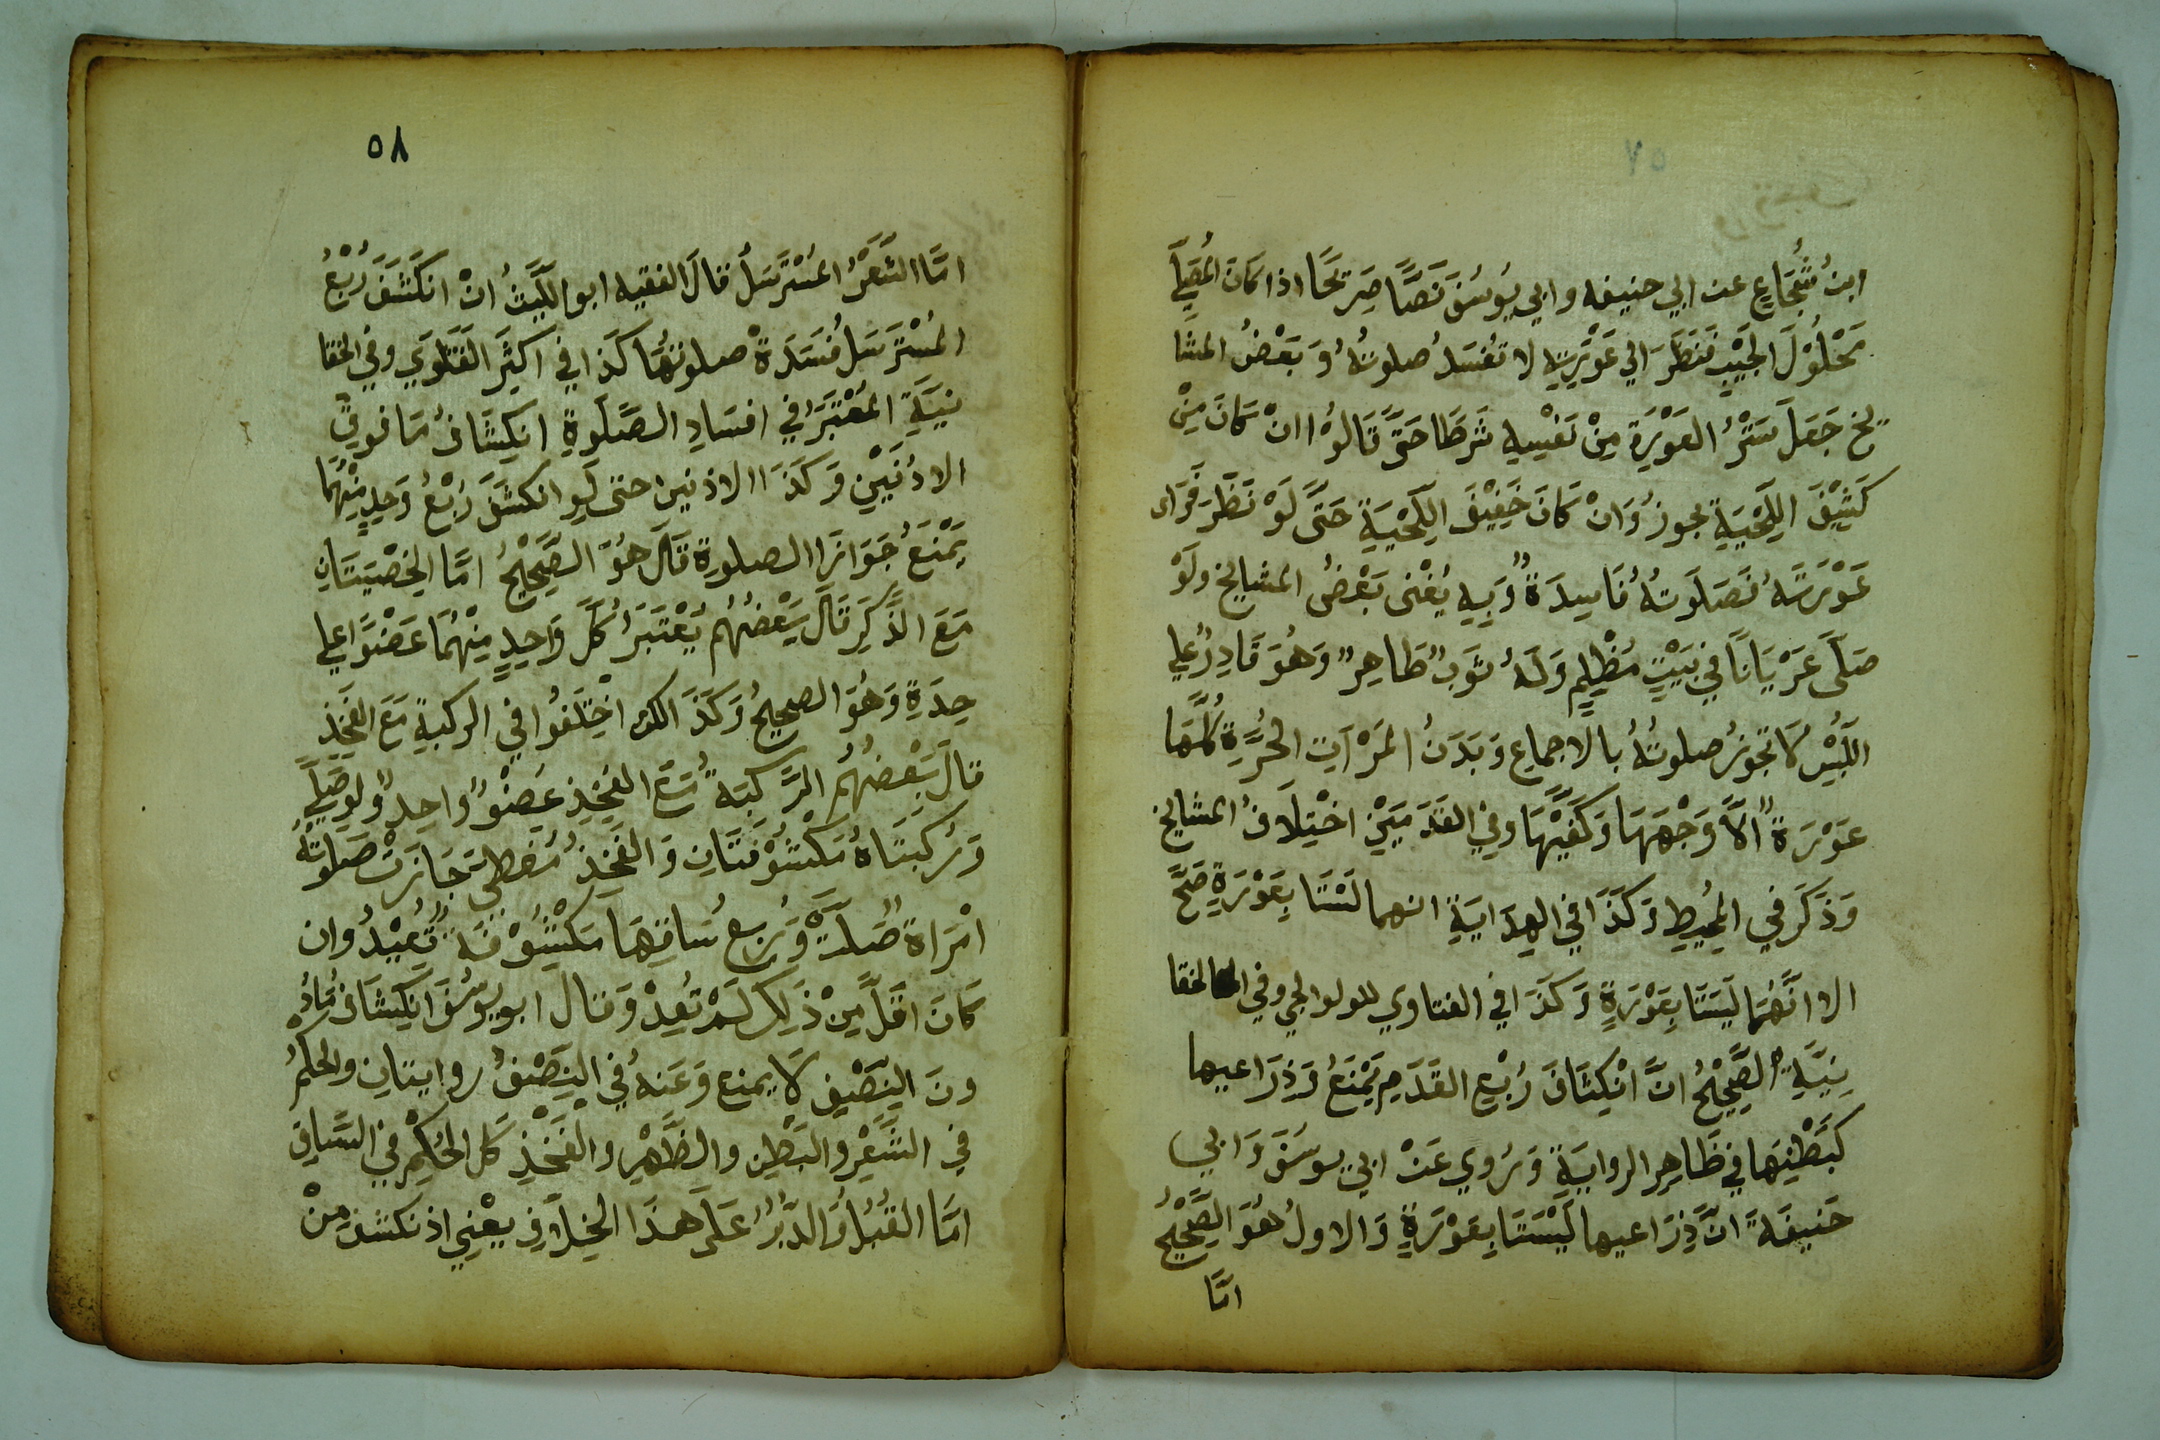 ٥٧
ابنُ شُجَاعٍ عن ابي حنيفه وابي يُوسُفَ نَصًّا صَرِيحًا اذا كَانَ المُصَلِّ
مَحْلُوْلَ الجَيْبِ فَنَظَرَ الي عَوْرَتِهِ لا تفسُدُ صلوتُهُ وَ بَعْضُ المشا
يخ جَعَلَ سَتْرُ العَوْرَةِ مِنْ نَفْسِهِ شَرطًا حَتَّى قَالُوْا انْ كَانَ مِنْ
كَثِيْفَ اللِّحْيَةِ يجوزُ وَانْ كَانَ خَفِيْفَ اللِّحْيَةِ حَتَّى لَوْ نَظَرَ فَرَاى
عَوْرَتَهُ فَصَلَوتُهُ فَاسِدَةٌ وَبِهِ يُفْتى بَعْضُ المشايخ ولَوْ
صَلَّى عَرْيَانًا في بَيْتٍ مُظْلِمٍ وَلَهُ ثوَبٌ طَاهِرٌ وَهُوَ قَادِرٌ علي
اللّبْسِ لَا تجوزُ صلوتُهُ بالاجماع وَ بَدَنُ المَرْآتِ الحُرَّةِ كُلَّهَا
عَوْرَةٌ الّا وَجْهَهَا وَكَفَّيْهَا وفي القَدَمَيْنِ اخْتِلَافُ المشايخ
وَذَكَرَ في المُحِيطِ وَكَذَا في الهِدَايَةِ انهما لَيْسَتَا بِعَوْرَةٍ صَحَّ
الا انَّهُمَا لَيسَتَا بِعَوْرَةٍ وَكَذَا في الفتاوي للولوالجي وفي الخقا
نِيَّةِ الصَّحِيْحُ انَّ انْكِشَافَ رُبْعِ القَدَمِ يَمْنَعُ وَذِرَاعيها
كَبَطْنِهَا في ظَاهِرِ الروايَةِ وَرُوي عَنْ ابي يوسَفَ وَابي
حَنيفَةَ انَّ ذِرَاعيها لَيْسَتَا بِعَوْرَةٍ وَالاولُ هُوَ الصَّحِيْحُ
امّا
٥٨
امَّا الشَّعَرُ المُسْتَرْسَلُ قالَ الفقيه ابو اللّيَثُ انْ انكَشَفَ رُبْعُ
المُسْتَرسَلِ فَسَدَةْ صلوتُهَا كَذا في اكثَرِ الفَتَاوَي وفي الخقا
نِيَّةِ المُعْتَبَرُ في افسَادِ الصَّلَوةِ انكِشَافُ مَا فَوقَ
الاذُنَيْنِ وَكَذَا الاذنين حتى لَو انكشَفَ رُبْعُ وَحِدٍ مِنْهُمَا
يَمْنَعُ جَوَازَ الصلوة قَالَ هُوَ الصَّحِيْحُ امَّا الخِصْيَتَانِ
مَعَ الذَّكَرِ قَالَ بَعْضُهُم يُعْتَبَرُ كُلَّ وَاحِدٍ مِنْهُمَا عَضْوًا علي
حِدَةٍ وَهُوَ الصحيحُ وَكَذَالك اخْتَلَفُوا في الركبةِ مَعَ الفَخِذِ
قالَ بَعْضُهُم الرّكبَةُ مَعَ الفَخِذِ عَضْوٌ واحِدٌ ولو صَلَّ
وَرُكبَتَاهُ مَكْشُوْفَتَانِ وَالفَخِذُ مُغَطى جَازَتْ صَلوتُهُ
امْرَاة صَلَّتْ وَرُبع سَاقِهَا مَكْشُوْفَةٌ تُعِيْدُ وان
كَانَ اقَلَّ مِنْ ذَلِكَ لَمْ تُعِدْ وَقَالَ ابو يوسُفَ انكِشَافُ مَادُ
ونَ النِصْفِ لَا يمنع وَعَنهُ في النِصْفِ روايتانِ والحكمُ
في الشَعْرِ والبَطْنِ والظَهْرِ والفَخْذِ كَالحُكْمِ في السَّاقِ
امَّا القُبُلُ وَالدُّبُرُ عَلَى هذا الخِلَافِ يعْنِي اذ نكشف مِنْ